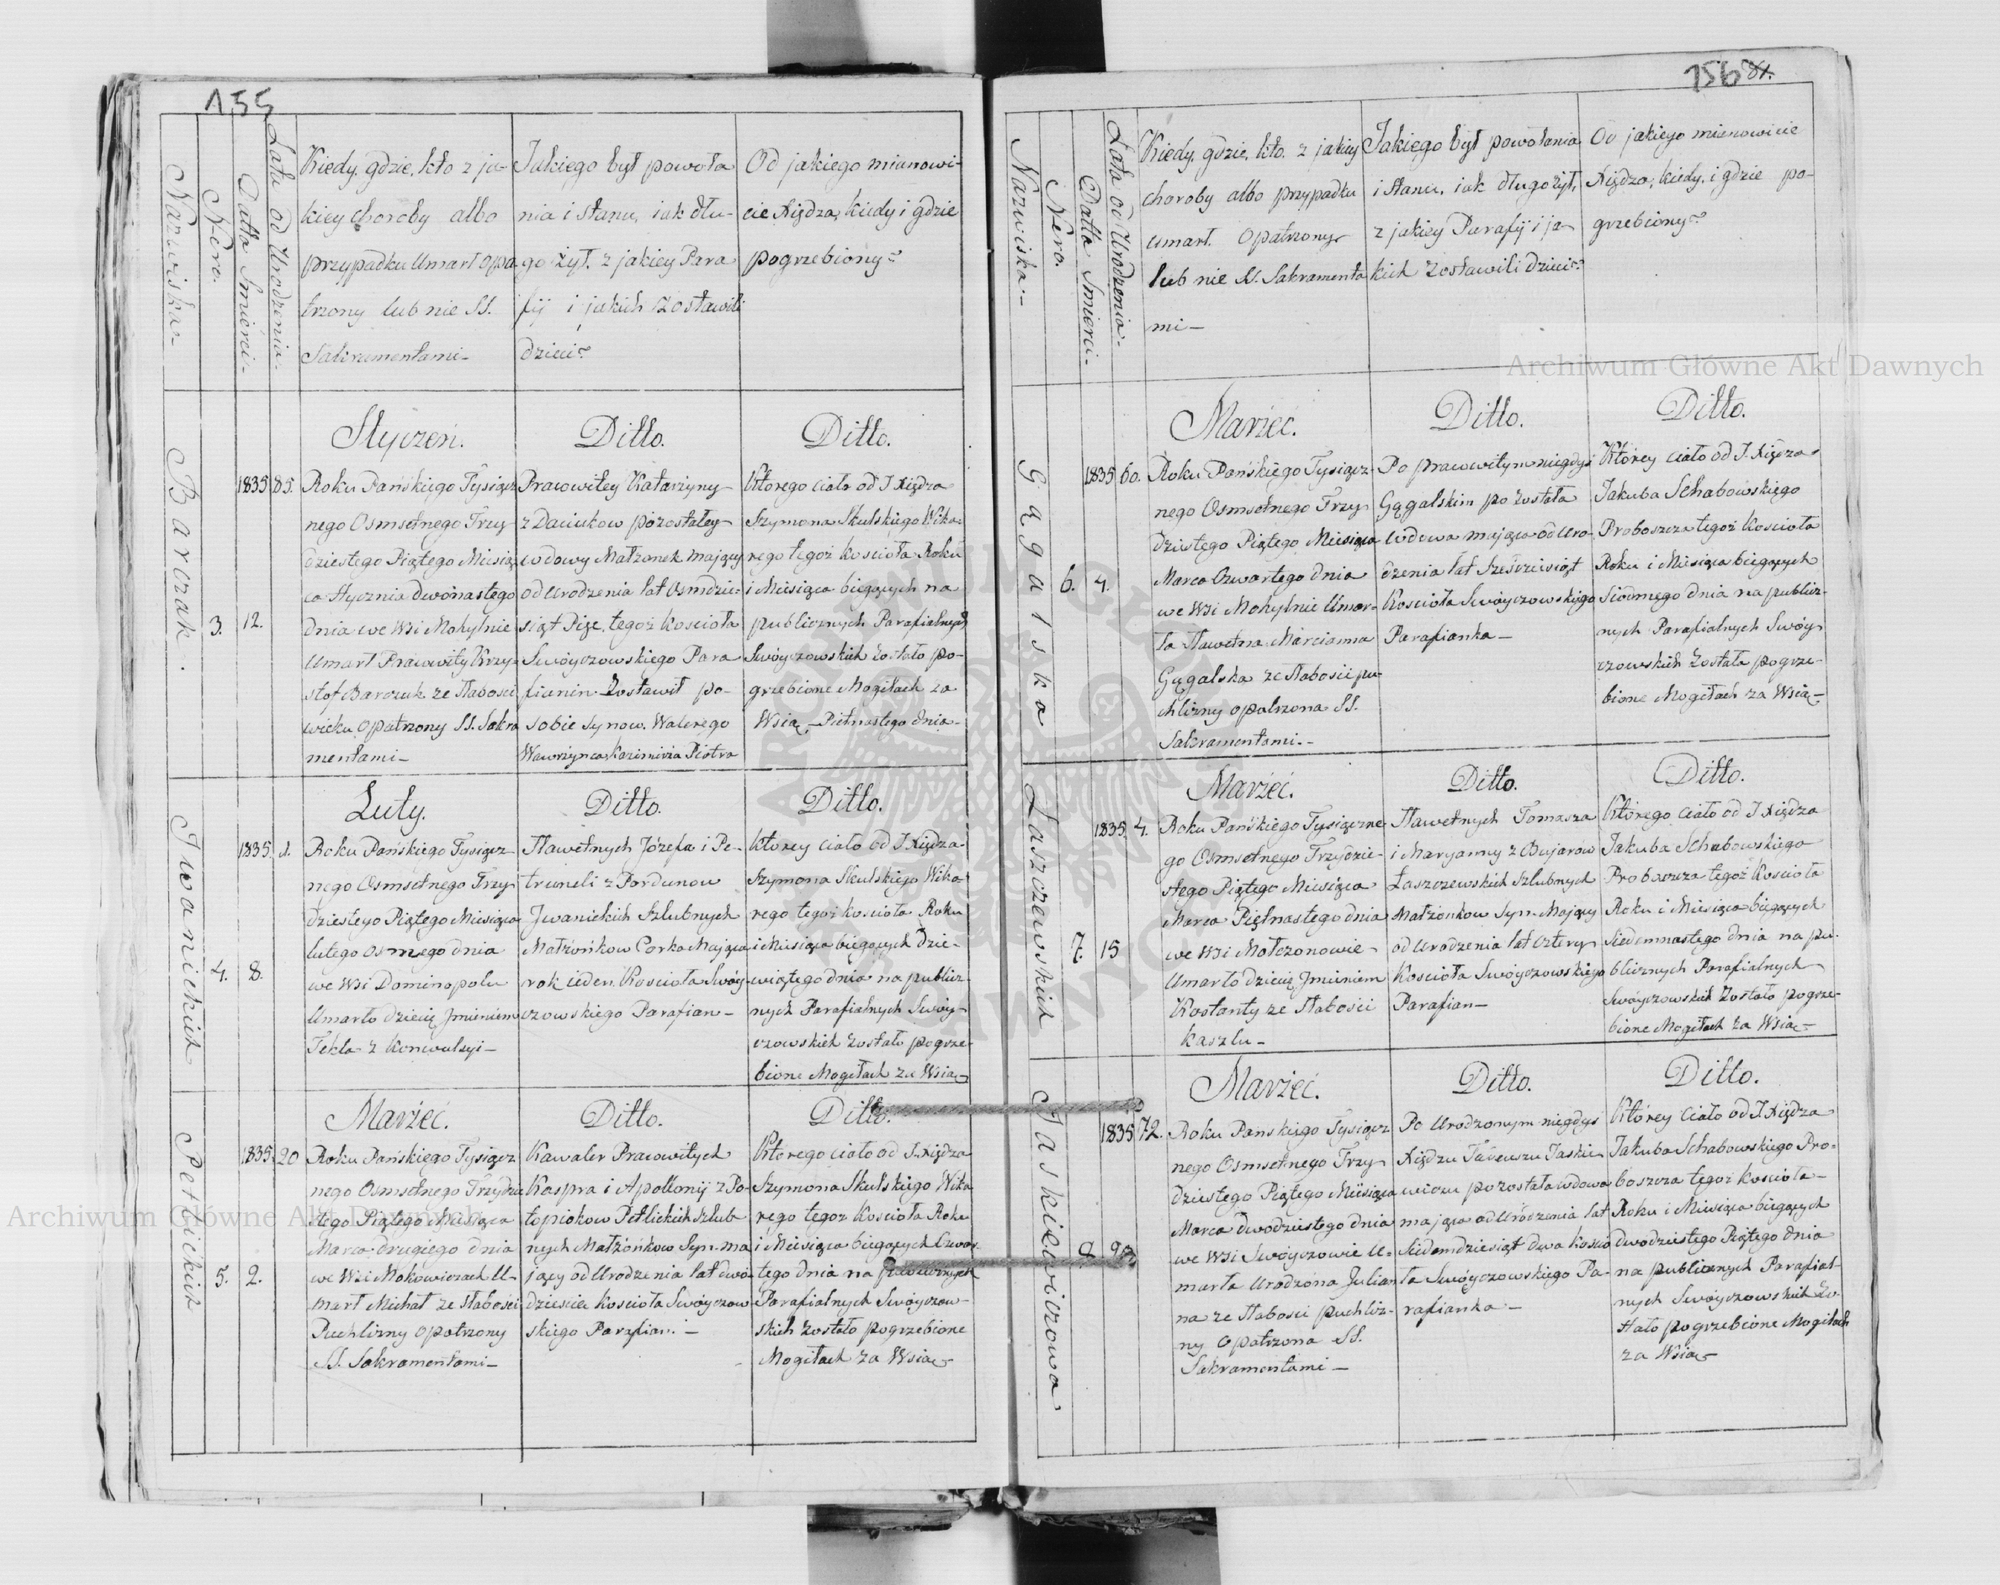 155
Nazwiska.
Nero.
Datta Smierci.
Lata od Urodzenia.
Kiedy, gdzie, kto z ja-
kiey choroby albo
przypadku Umarł opa
trzony lub nie SS.
Sakramentami
Jakiego był powoła
nia i stanu, iak dłu-
go żył, z jakiey Para
fij i jakich zostawili
dzieci?
Od jakiego mianowi-
cie Xiędza, kiedy i gdzie
pogrzebiony?
Barczak.
3.
1835
12.
85.
Styczeń.
Roku Pańskiego Tysiącz
nego Osmsetnego Trzy
dziestego Piątego Miesią
ca Stycznia dwónastego
dnia we Wsi Mohylnie
Umarł Pracowity Krzy-
sztof Barczuk ze słabości
wieku opatrzony SS. Sakra
mentami
Ditto.
Pracowitey Katarzyny
z Daciukow pozostałey
wdowy Małżonek mający
od Urodzenia lat Osmdzie-
siąt Pięc, tegoż Kościoła
Swóyczowskiego Para
fianin Zostawił po-
sobie synow. Walerego
Wawrzynca, Kazimirza Piotra
Ditto.
Którego ciało od J. Xiędza
Szymona Skulskiego Wika-
rego tegoż kościoła Roku
i Miesiąca bieących na
publicznych Parafialnych
Swóyczowskich zostało po-
grzebione Mogiłach za
Wsią, Pietnastego dnia
Iwanickich
4.
1835.
8.
1.
Luty.
Roku Pańskiego Tysiącz-
nego Osmsetnego Trzy
dziestego Piątego Miesiąca
lutego osmego dnia
we Wsi Dominopolu
Umarło dziecię Jmieniem
Tekla z Konwulsyi
Ditto.
Sławetnych Józefa i Pe-
truneli z Pordunow
Jwanickich Szlubnych
Małżonkow Corka Mająca
rok ieden. Kościoła Swóy
czowskiego Parafian
Ditto.
Którey ciało od J. Xiędza
Szymona Skulskiego Wika-
rego tegoż kościoła Roku
i Miesiąca bieących Dzie-
wiątego dnia na publicz-
nych Parafialnych Swóy-
czowskich zostało pogrze-
bione Mogiłach za Wsią
Petlickich
5.
1835.
2.
20
Marzec.
Roku Pańskiego Tysiącz
nego Osmsetnego Trzydzie
stego Piątego Miesiąca
Marca drugiego dnia
we Wsi Mokowiczach U-
marł Michał ze słabości
Puchliny opatrzony
SS. Sakramentami
Ditto.
Kawaler Pracowitych
Kaspra i Apollonij z Po-
topiokow Petlickich Szlub
nych Małżónkow Syn. ma
jący od Urodzenia lat dwó-
dzieścia kościoła Swóyczow
skiego Parafian.
Ditto.
Którego ciało od J. Xiędza
Szymona Skulskiego Wika
rego tegoż Kościoła Roku
i Miesiąca bieących Czwar-
tego dnia na publicznych
Parafialnych Swóyczow-
skich zostało pogrzebione
Mogiłach za Wsią
156
81.
Nazwiska.
Nero.
Datta Smierci.
Lata od Urodzenia.
Kiedy, gdzie, kto. z jakiey
choroby albo przypadku
umarł. Opatrzony
lub nie SS. Sakramenta
mi
Jakiego był powołania
i stanu, iak długo żył,
z jakiey Parafij i ja-
kich zostawili dzieci?
Od jakiego mianowicie
Xiędza, kiedy, i gdzie po-
grzebiony?
Gągalska
6.
1835
4.
60.
Marzec.
Roku Pańskiego Tysiącz-
nego Osmsetnego Trzy
dziestego Piątego Miesiąca
Marca Czwartego dnia
we Wsi Mohylnie Umar-
ła Sławetna Marcianna
Gągalska ze słabości pu
chliny opatrzona SS.
Sakramentami.
Ditto.
Po pracowitym niegdyś
Gągalskim pozostała
wdowa mająca od Uro-
dzenia lat Sześcdziesiąt
Kościoła Swóyczowskiego
Parafianka
Ditto.
Którey ciało od J. Xiędza
Jakuba Schabowskiego
Proboszcza tegoż Kościoła
Roku i Miesiąca bieących
Siódmego dnia na publicz-
nych Parafialnych Swóy
czowskich zostało pogrze-
bione Mogiłach za Wsią
Łaszczewskich
7.
1835
15
4.
Marzec.
Roku Pańskiego Tysiączne
go Osmsetnego Trzydzie-
stego Piątego Miesiąca
Marca Piętnastego dnia
we Wsi Mołczonowie
Umarło dziecię Jmieniem
Kostanty ze słabości
kaszlu
Ditto.
Sławetnych Tomasza
i Maryanny z Bujarow
Łaszczewskich Szlubnych
Małżonkow Syn. Mający
od Urodzenia lat cztery
Kościoła Swóyczowskiego
Parafian
Ditto.
Którego ciało od J. Xiędza
Jakuba Schabowskiego
Proboszcza tegoż Kościoła
Roku i Miesiąca bieących
Siedemnastego dnia na pu-
blicznych Parafialnych
Swóyczowskich zostało pogrze-
bione Mogiłach za Wsią
Jaskiewiczowa
8
1835
20
72.
Marzec.
Roku Pańskiego Tysiącz
nego Osmsetnego Trzy
dziestego Piątego Miesiąca
Marca dwódziestego dnia
we Wsi Swóyczowie U-
marła Urodzona Julian
na ze słabości puchli-
ny Opatrzona SS.
Sakramentami
Ditto.
Po Urodzonym niegdyś
Xiędzu Tadeuszu Jaskie
wiczu pozostała wdowa
mająca od Uródzenia lat
Siedemdziesiąt dwa kościo
ła Swóyczowskiego Pa-
rafianka
Ditto.
Którey ciało od J. Xiędza
Jakuba Schabowskiego Pro-
boszcza tegoż kościoła
Roku i Miesiąca bieących
dwódziestego Piątego dnia
na publicznych Parafial-
nych Swóyczowskich zo-
stało pogrzebione Mogiłach
za Wsią
Archiwum Główne Akt Dawnych
Archiwum Główne Akt Dawnych